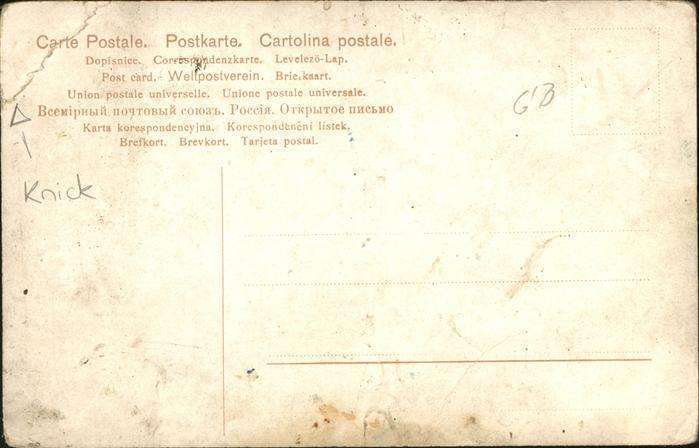 Carte Postale. Postkarte. Cartolina postale.
Dopisnice. Correspondenzkarte. Levelező-Lap.
Post card. Weltpostverein. Briefkaart.
Union postale universelle. Unione postale universale.
Всемірный почтовый союзъ. Россія. Открытое письмо
Karta korespondencyjna. Korespondenční lístek.
Brefkort. Brevkort. Tarjeta postal.
Knick